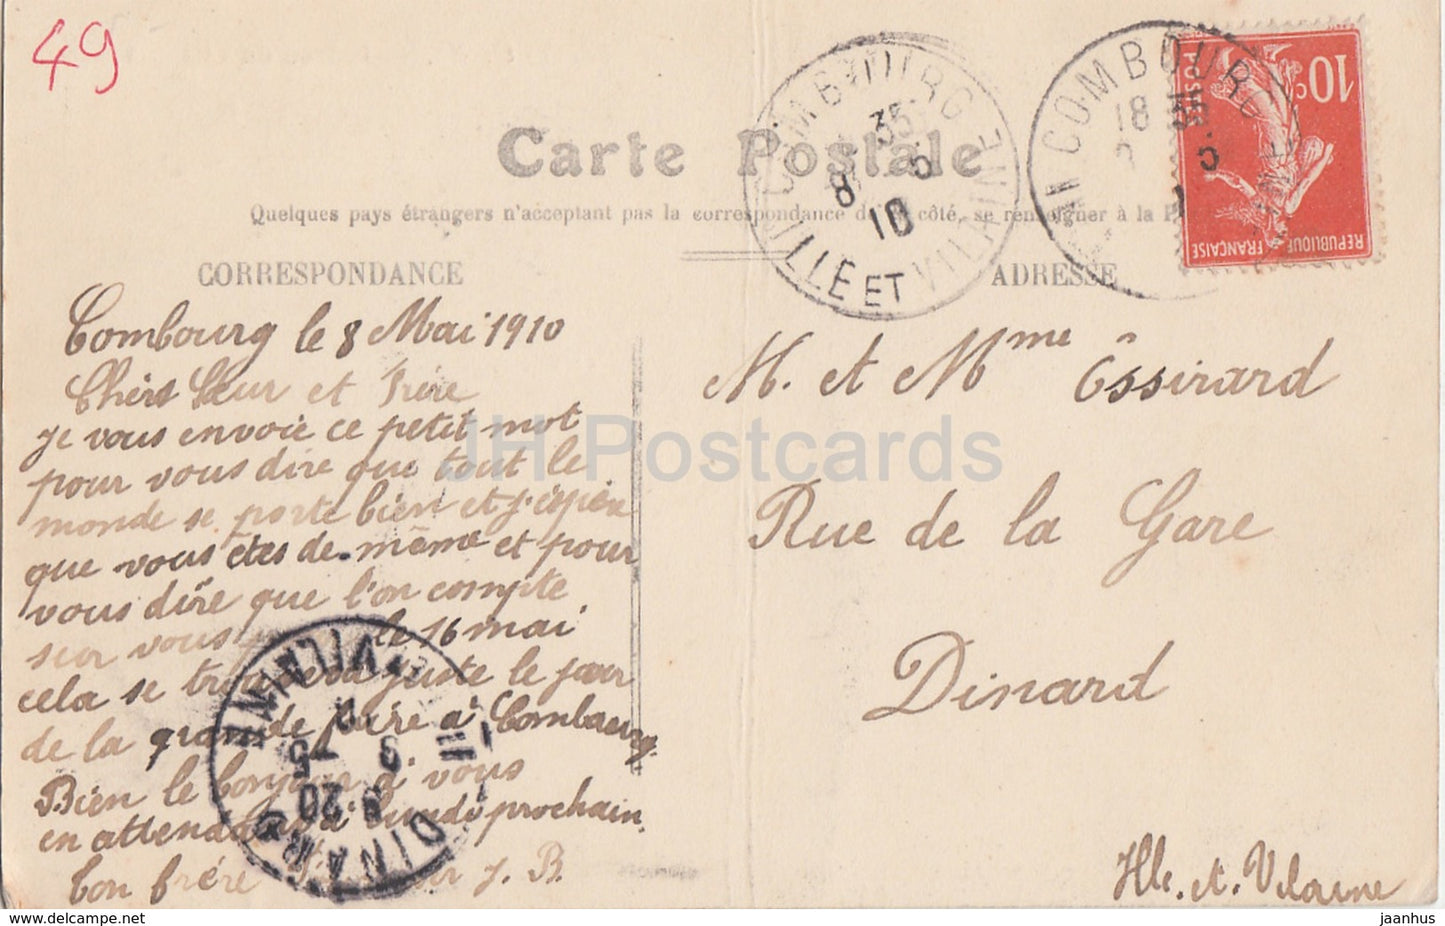 49
Carte Postale
Quelques pays étrangers n'acceptant pas la correspondance de ce côté, se renseigner à la
CORRESPONDANCE
ADRESSE
COMBOURG
35
8 5
10
ILLE ET VILAINE
COMBOURG
18 35
5
10 c
POSTES
REPUBLIQUE FRANÇAISE
Combourg le 8 Mai 1910
Chèrs Sœur et Frère
je vous envoie ce petit mot
pour vous dire que tout le
monde se porte bien et j'éspère
que vous êtes de même et pour
vous dire que l'on compte
sur vous le 16 mai
cela se trouvera juste le jour
de la grande foire à Combourg
Bien le bonjour à vous
en attendant à lundi prochain
bon frére J. B.
M. et Mme Ossirard
Rue de la Gare
Dinard
Ille. et. Vilaine
DINARD
8 20
9 5
VILAINE
JH Postcards
jaanhus.com